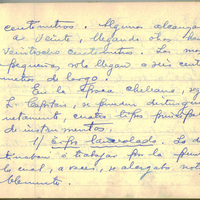 centímetros. Algunos alcanzan
de veinte, llegando otros has
veintiocho centímetros. Los mas
pequeños solo llegan a seis cent
metros de largo.
En la época chilena, se
L. Capitan, se pueden distingui
netamente, cuatro tipos principa
de instrumentos.
1/ Tipo lanceolado. Los d
tinaban a trabajar por la pun
lo cual, a veces, se alargaba not
blemente.